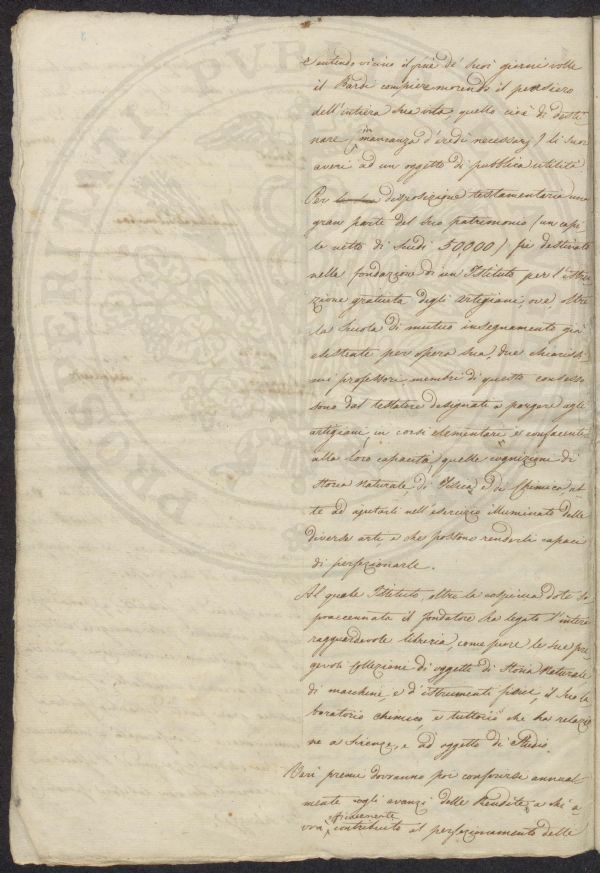 Sentendo vicino il fine de' suoi giorni volle
il Bardi compiere morendo il pensiero
dell'intiera sua vita quello cioè di desti
nare, in mancanza d'eredi necessarj i suoi
averi ad un oggetto di pubblica utilità
Per disposizione testamentaria una
gran parte del suo patrimonio (un capi
le netto di scudi 50,000) fù destinato
nella fondazione di un Istituto per l'istru
zione gratuita degli artigiani, ove, oltre
la scuola di mutuo insegnamento già
esistente per opera sua, due chiariss
mi professori, membri di questo consesso
sono dal testatore designati a porgere agli
artigiani, in corsi elementari e confacenti
alla loro capacità, quelle cognizioni di
storia naturale, di Fisica e di Chimica at
te ad ajutarli nell'esercizio illuminato delle
diverse arti e che possono renderli capaci
di perfezionarle.
Al quale Istituto, oltre la cospicua dote so
praccennata il fondatore ha legato l'intera
ragguardevole libreria, come pure le sue pre
gevoli collezione di oggetti di Storia Naturale
di macchine, e d'istrumenti fisici, il suo la
boratorio chimico, e tuttociò che ha relazio
ne a scienze, e ad oggetto di studio.
Varj premii dovranno poi conferirsi annual
mente cogli avanzi delle rendite, a chi a
vrà contribuito al perfezionamento delle
PROSPERITATI PVBLI